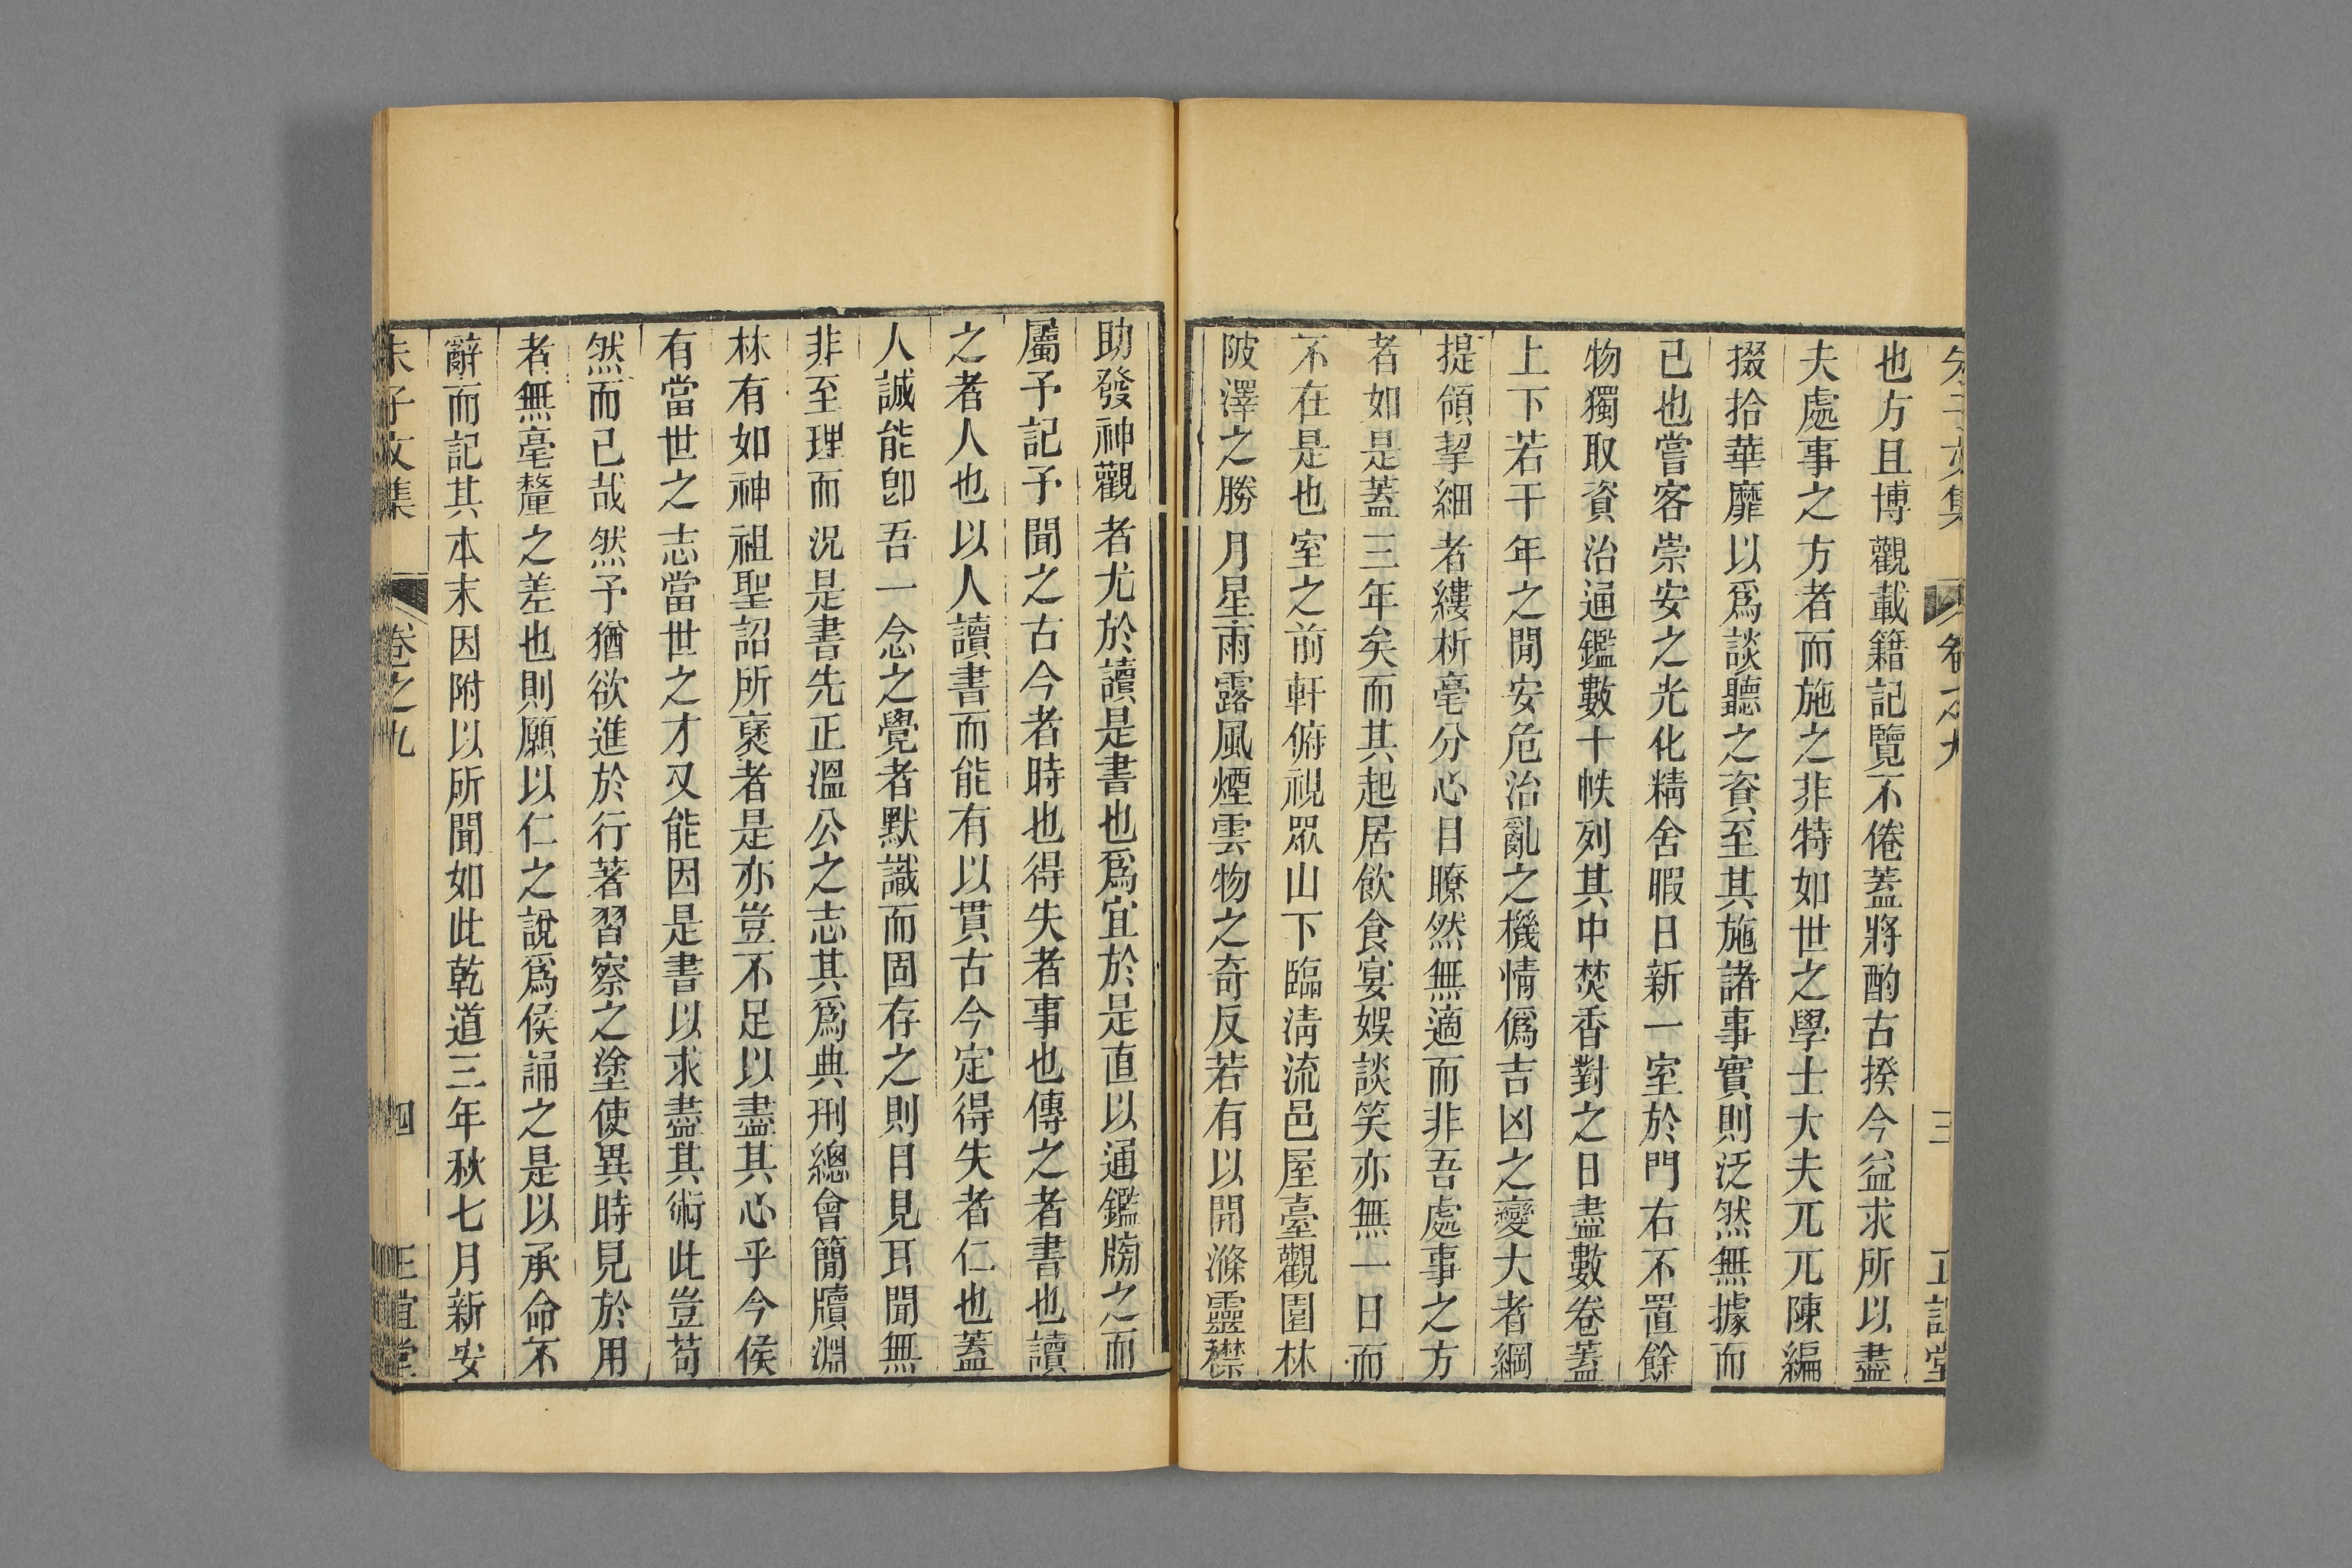 朱子文集 卷之九 三 正誼堂
也方且博觀載籍記覽不倦蓋將酌古揆今益求所以盡
夫處事之方者而施之非特如世之學士大夫兀兀陳編
掇拾華靡以爲談聽之資至其施諸事實則泛然無據而
已也嘗客崇安之光化精舍暇日新一室於門右不置餘
物獨取資治通鑑數十帙列其中焚香對之日盡數卷蓋
上下若干年之閒安危治亂之機情僞吉凶之變大者綱
提領挈細者縷析毫分心目瞭然無適而非吾處事之方
者如是蓋三年矣而其起居飲食宴娛談笑亦無一日而
不在是也室之前軒俯視眾山下臨清流邑屋臺觀園林
陂澤之勝月星雨露風煙雲物之奇反若有以開滌靈襟
助發神觀者尤於讀是書也爲宜於是直以通鑑牓之而
屬予記予聞之古今者時也得失者事也傳之者書也讀
之者人也以人讀書而能有以貫古今定得失者仁也蓋
人誠能卽吾一念之覺者默識而固存之則目見耳聞無
非至理而況是書先正溫公之志其爲典刑總會簡牘淵
林有如神祖聖詔所襃者是亦豈不足以盡其心乎今侯
有當世之志當世之才又能因是書以求盡其術此豈苟
然而已哉然予猶欲進於行著習察之塗使異時見於用
者無毫釐之差也則願以仁之說爲侯誦之是以承命不
辭而記其本末因附以所聞如此乾道三年秋七月新安
朱子文集 卷之九 四 正誼堂